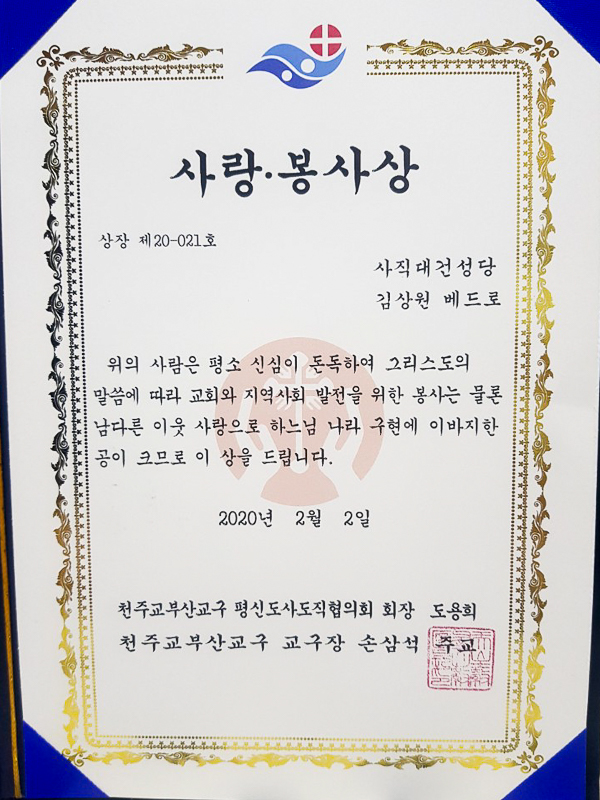 사랑·봉사상
상장 제20-021호
사직대건성당
김상원 베드로
위의 사람은 평소 신심이 돈독하여 그리스도의
말씀에 따라 교회와 지역사회 발전을 위한 봉사는 물론
남다른 이웃 사랑으로 하느님 나라 구현에 이바지한
공이 크므로 이 상을 드립니다.
2020년 2월 2일
천주교부산교구 평신도사도직협의회 회장 도용희
천주교부산교구 교구장 손삼석 주교